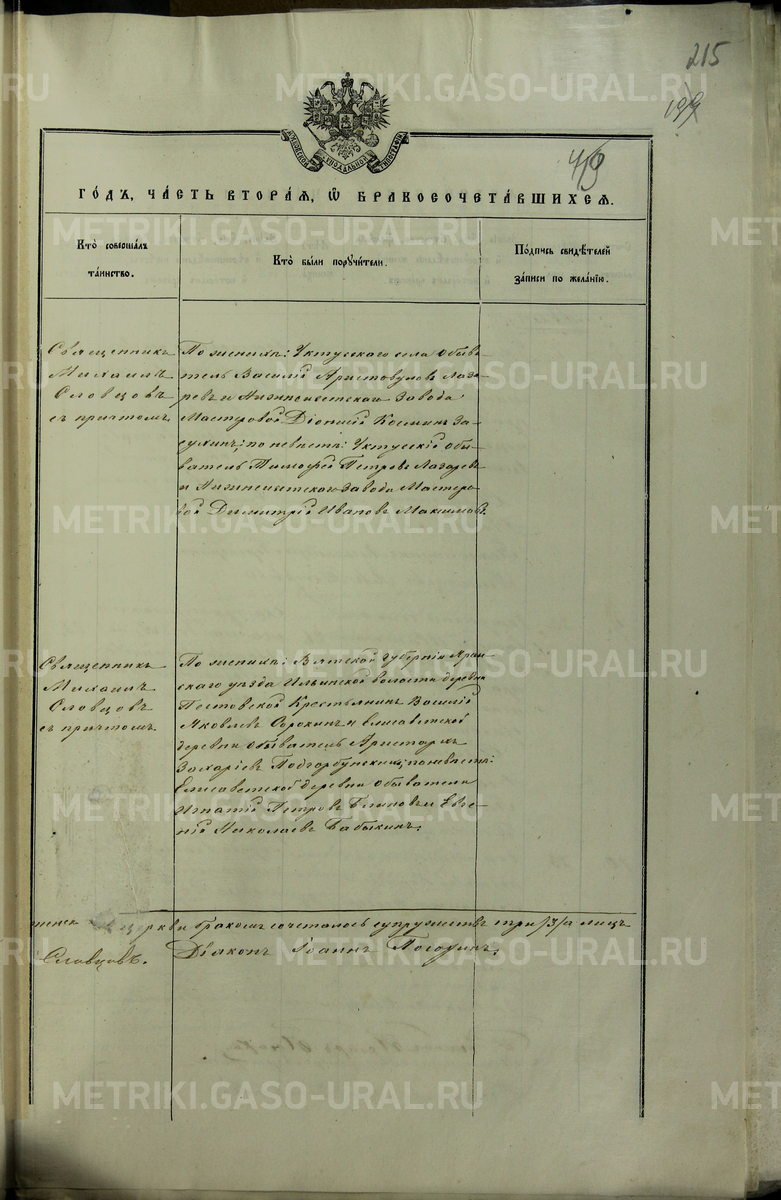 215
199
419
МОСКОВСКОЙ СѴНОДАЛЬНОЙ ТИПОГРАФІИ
ГО́ДЪ, ЧА́СТЬ ВТОРА́Ѧ, Ѡ҆ БРАКОСОЧЕТА́ВШИХСѦ.
Кто̀ соверша́лъ
та́инство.
Кто̀ бы́ли порꙋчи́тели.
По́дпись свидѣ́телей
за́писи по жела́нїю.
Священникъ
Михаилъ
Словцовъ
съ причтомъ.
По женихѣ: Уктусскаго села обыва-
тель Василій Аристовуловъ Лаза-
ревъ и Нижнеисетскаго Завода
Мастеровой Діонисій Косминъ За-
сухинъ; по невестѣ: Уктусскій обы-
ватель Тимофей Петровъ Лазаревъ
и Нижнеисетскаго Завода Мастеро-
вой Димитрій Ивановъ Максимовъ.
Священникъ
Михаилъ
Словцовъ
съ причтомъ.
По женихѣ: Вятской губерніи Яран-
скаго уѣзда Ильинской волости деревни
Пестовской Крестьянинъ Василій
Яковлевъ Сорокинъ и Елисаветской
деревни обыватель Аристархъ
Захаріевъ Подгорбунскихъ; по невестѣ:
Елисаветской деревни обыватели
Игнатій Петровъ Блиновъ и Евге-
ній Николаевъ Бабыкинъ.
церкви бракомъ сочеталось супружествъ три /3/ а лицъ
Словцовъ.
Діаконъ Іоаннъ Погодинъ.
METRIKI.GASO-URAL.RU